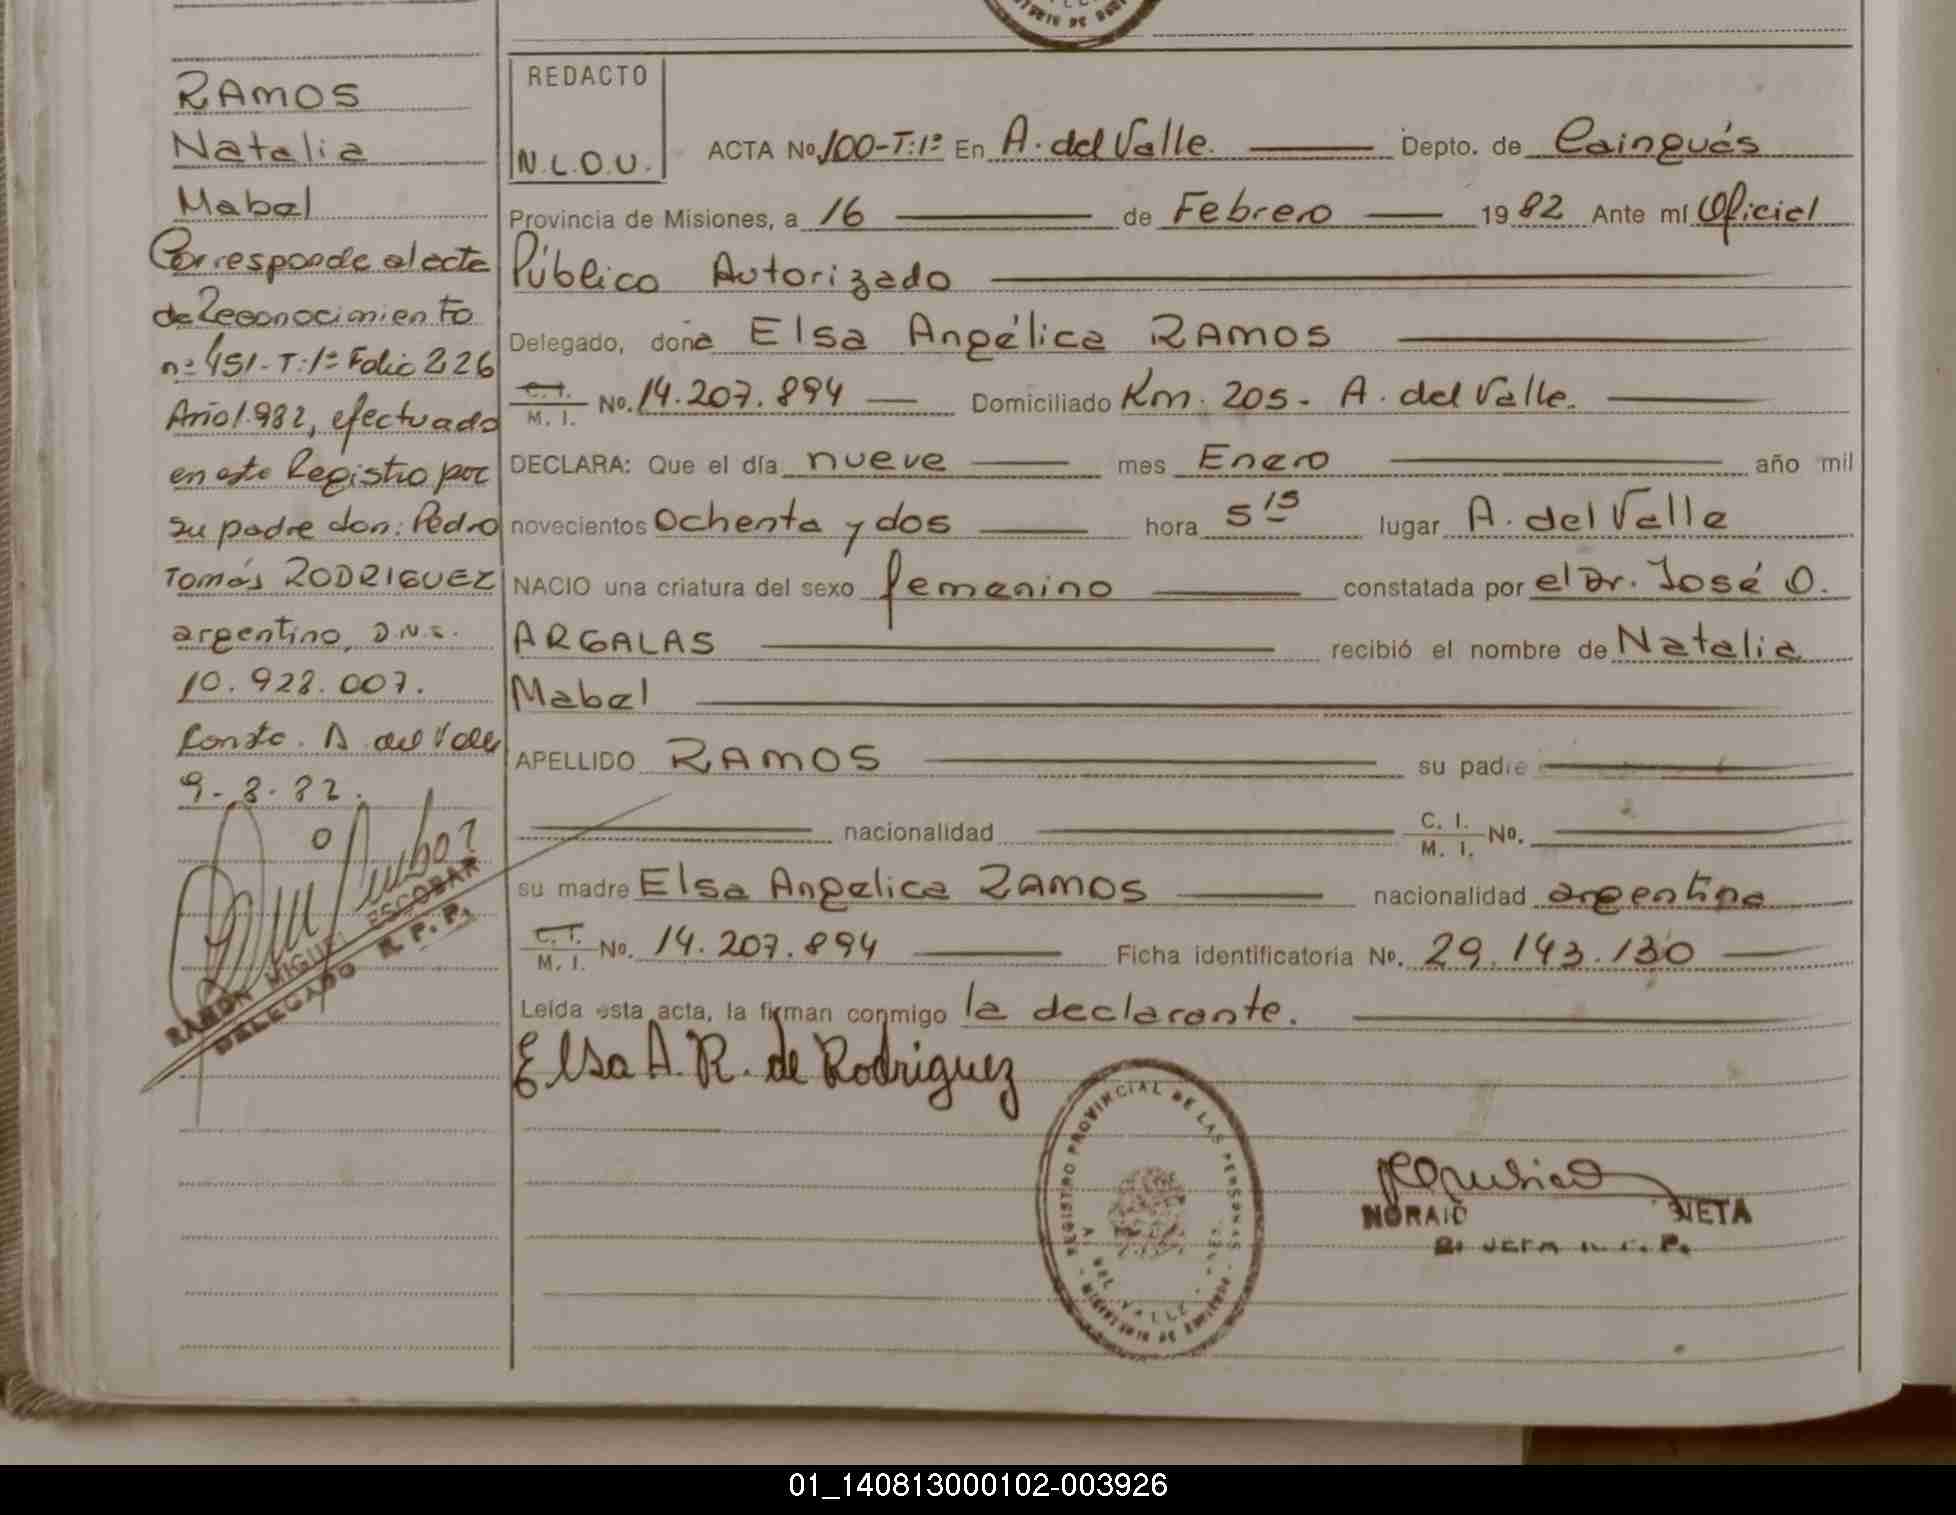 RAMOS
Natalia
Mabel
Corresponde al acta
de Reconocimiento
nº 451-T:1º Folio 226
Año 1.982, efectuado
en este Registro por
su padre don: Pedro
Tomás RODRIGUEZ
argentino, D.N.I.
10.928.007.
Conste. A. del Valle
9-8-82.
RAMON MIGUEL ESCOBAR
DELEGADO R.P.P.
REDACTO
N.L.O.U.
ACTA Nº 100-T:1º En A. del Valle. Depto. de Cainguás
Provincia de Misiones, a 16 de Febrero 1982 Ante mí Oficial
Público Autorizado
Delegado, doña Elsa Angélica RAMOS
C.I. M.I. No. 14.207.894 Domiciliado Km. 205- A. del Valle.
DECLARA: Que el día nueve mes Enero año mil
novecientos ochenta y dos hora 5 15 lugar A. del Valle
NACIO una criatura del sexo femenino constatada por el Dr. José O.
ARGALAS recibió el nombre de Natalia
Mabel
APELLIDO RAMOS su padre
nacionalidad C. I. M. I. Nº.
su madre Elsa Angelica RAMOS nacionalidad argentina
C.I. M.I. No. 14.207.894 Ficha identificatoria Nº. 29.143.130
Leída esta acta, la firman conmigo la declarante.
Elsa A. R. de Rodriguez
REGISTRO PROVINCIAL DE LAS PERSONAS
DEL VALLE
01_140813000102-003926